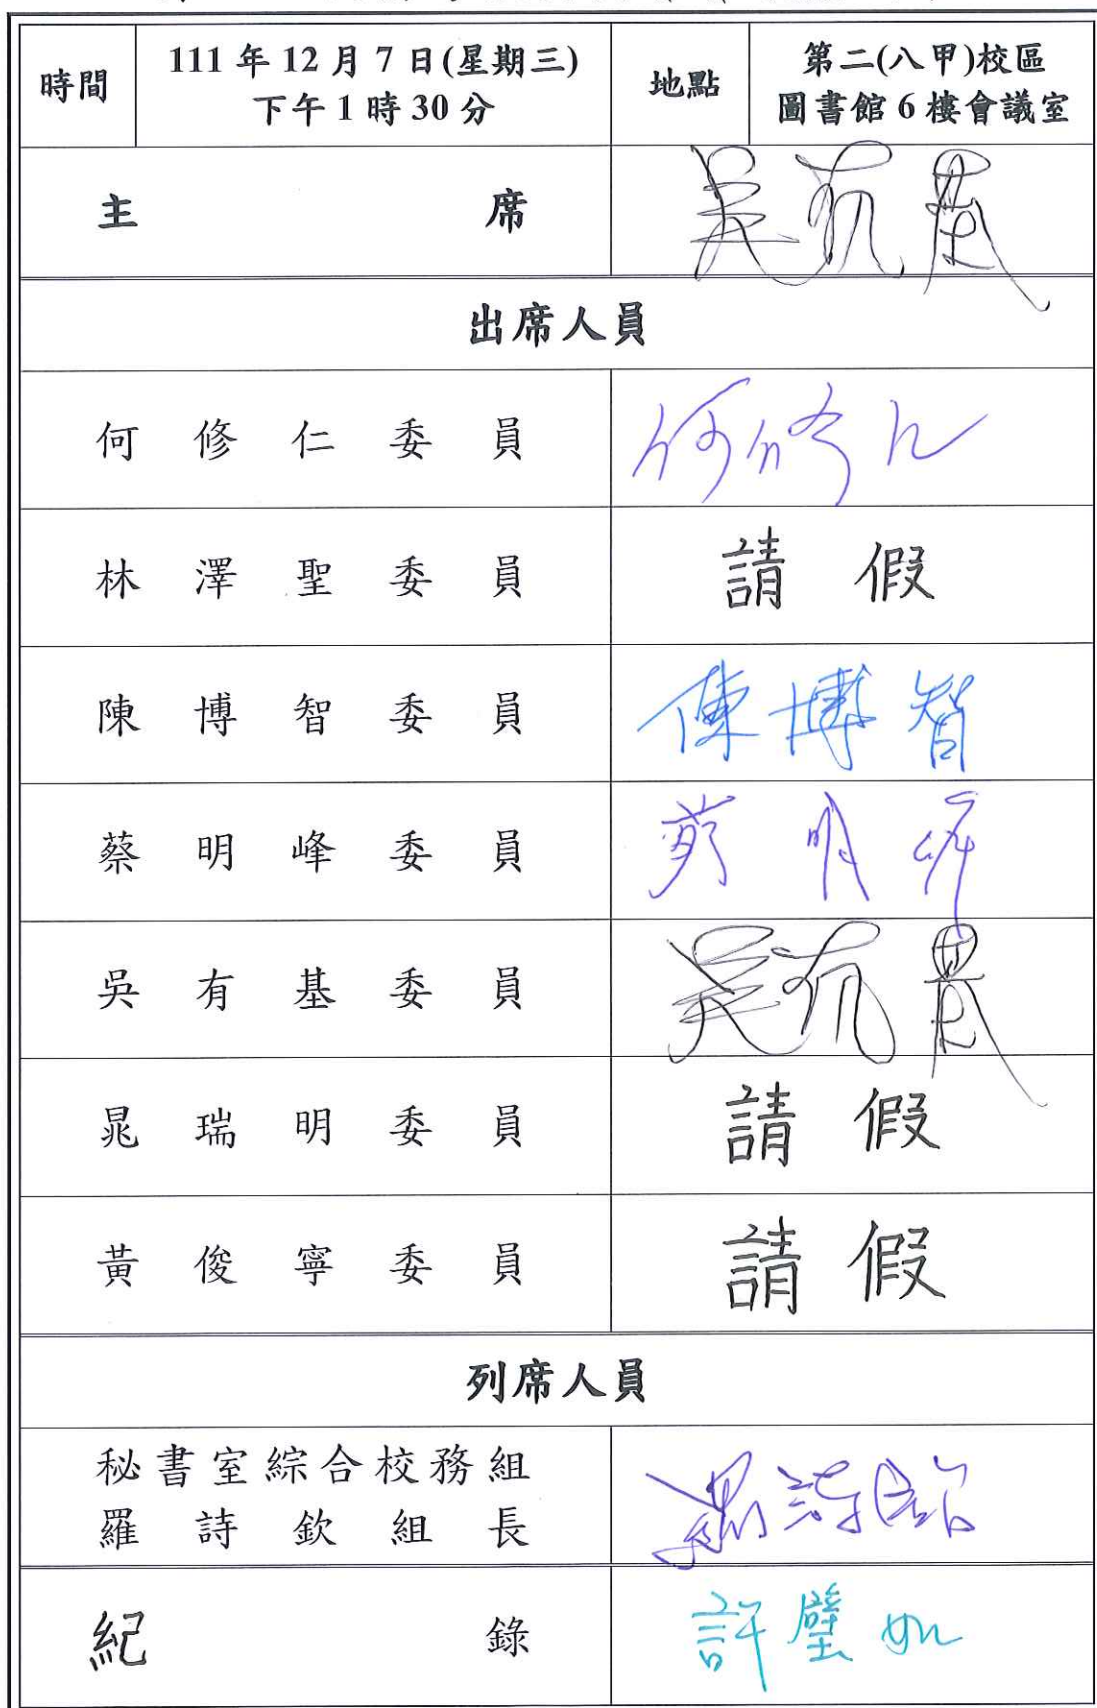 時間 111 年 12 月 7 日(星期三) 下午 1 時 30 分 地點 第二(八甲)校區 圖書館 6 樓會議室
主席 吳有基
出席人員
何修仁委員 何修仁
林澤聖委員 請假
陳博智委員 陳博智
蔡明峰委員 蔡明峰
吳有基委員 吳有基
晁瑞明委員 請假
黃俊寧委員 請假
列席人員
秘書室綜合校務組
羅詩欽組長 羅詩欽
紀錄 許璧如